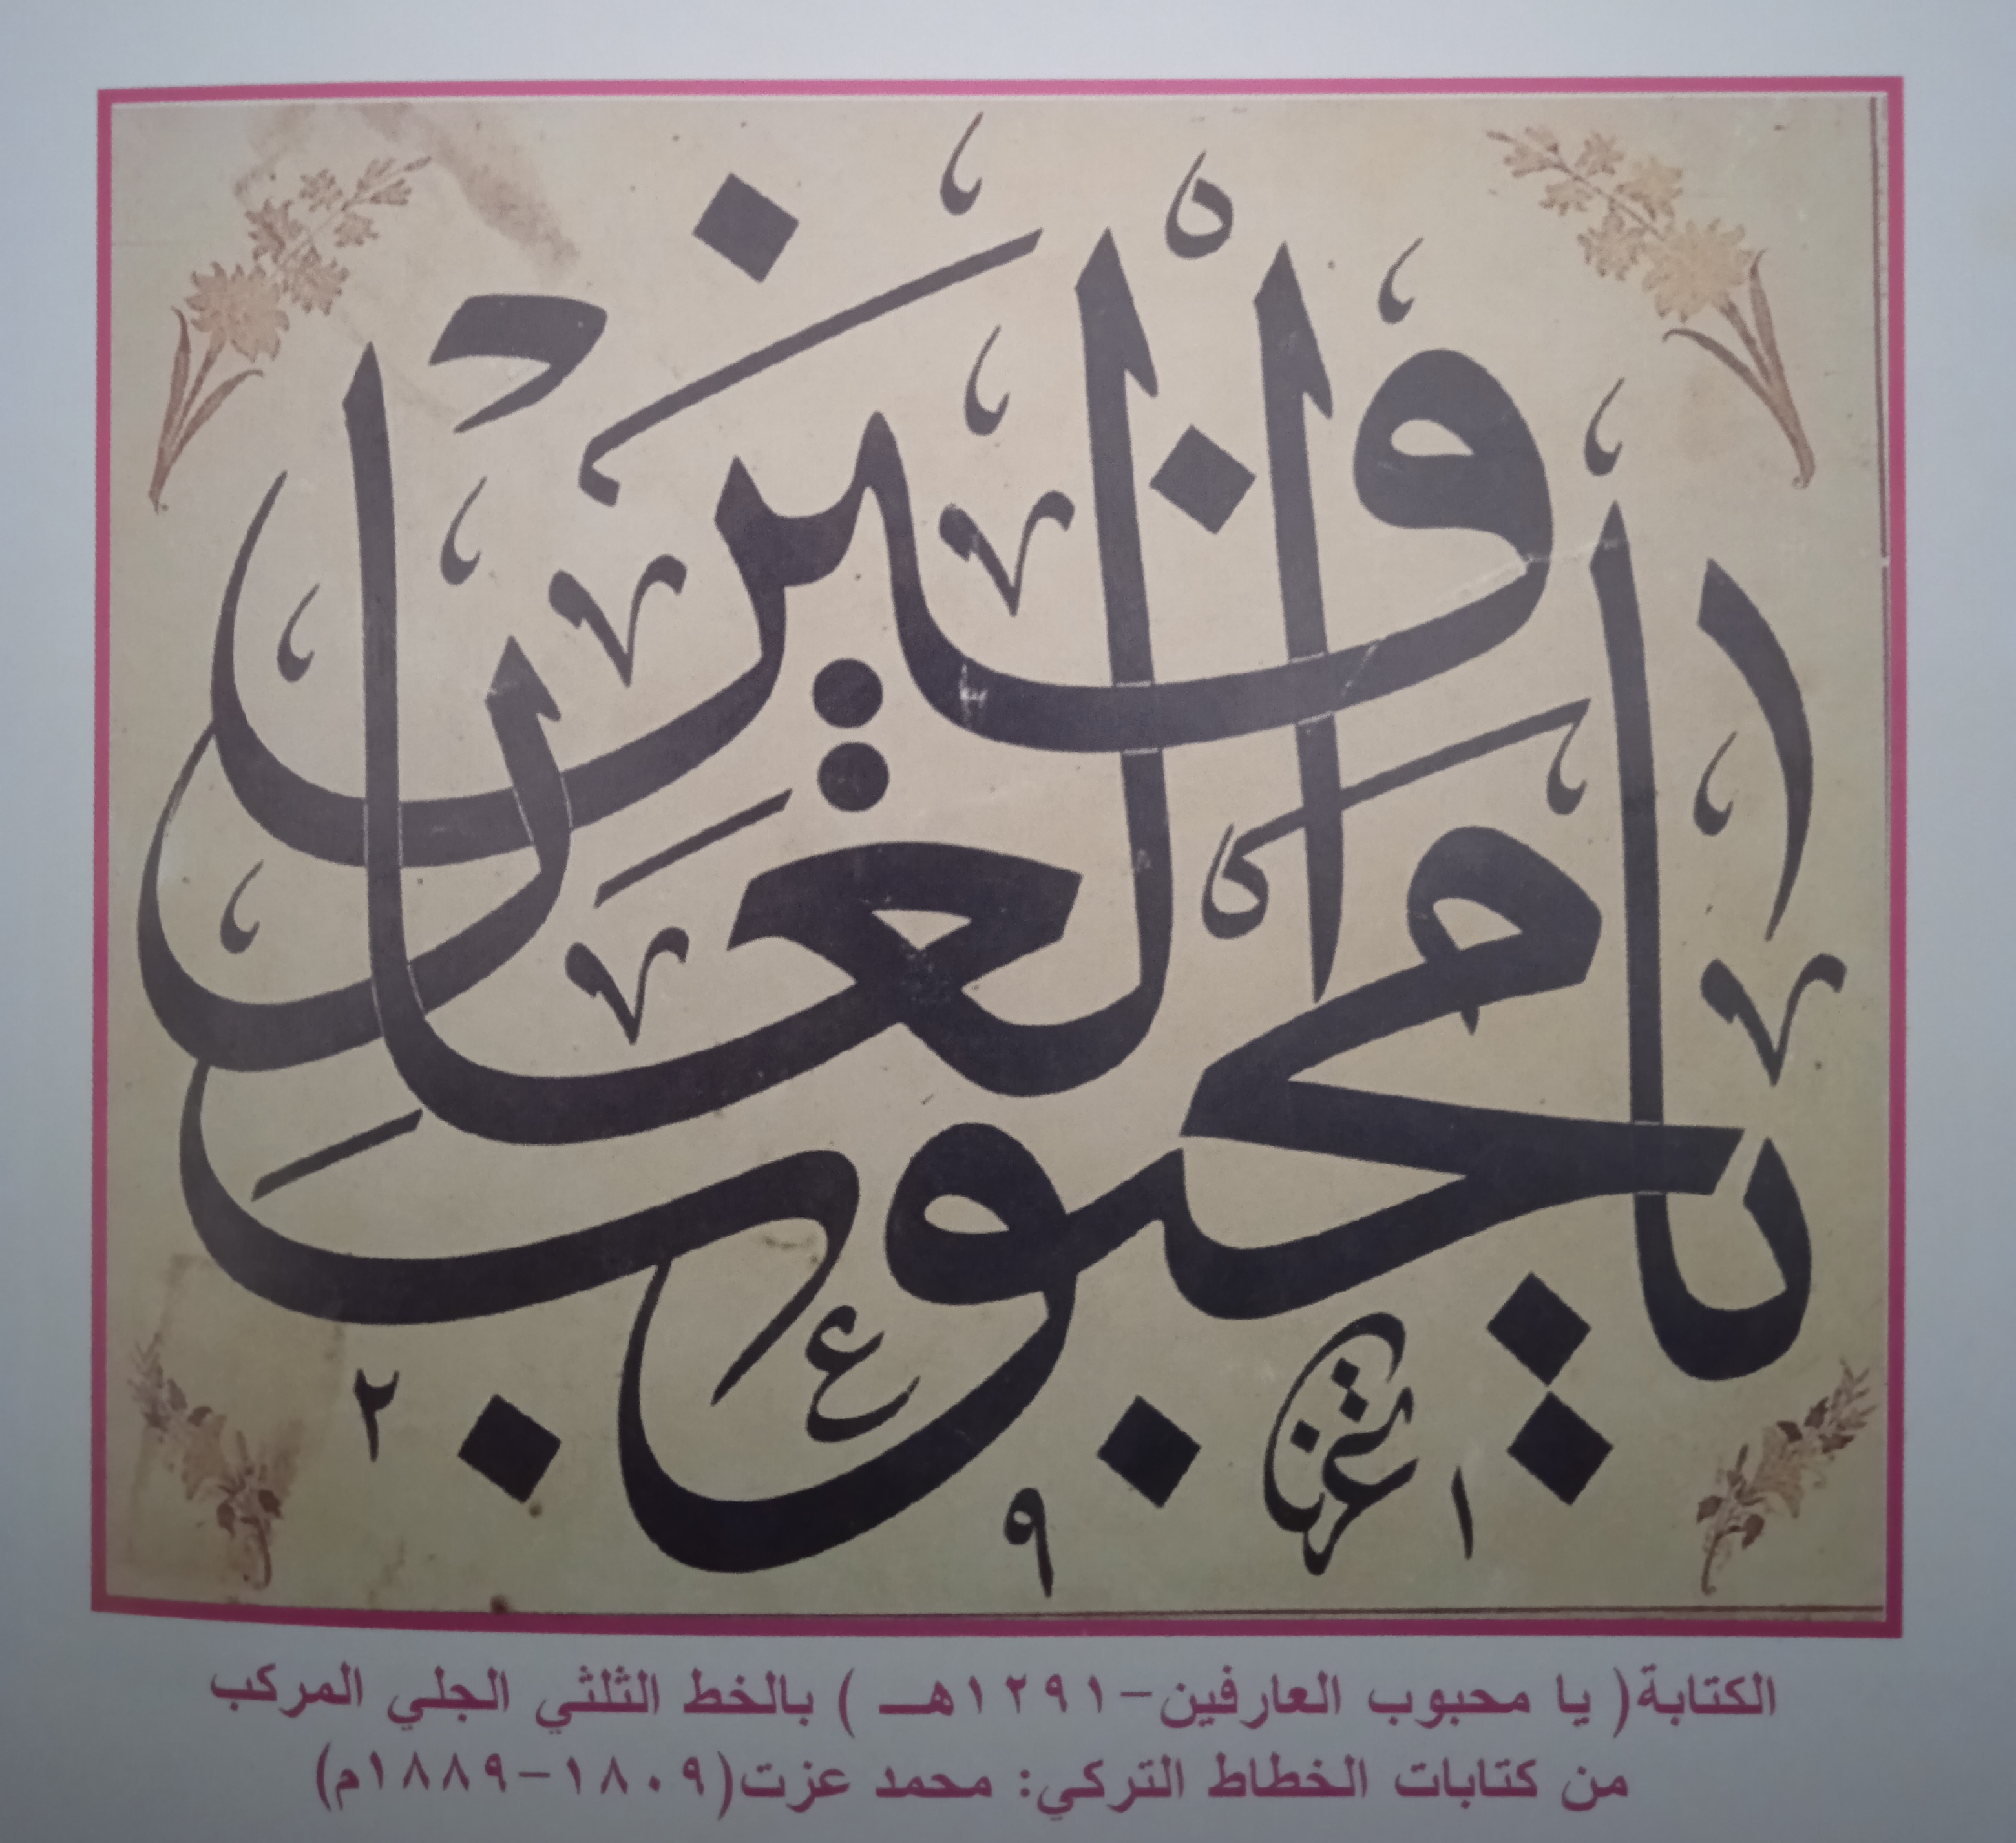 يا محبوب العارفين
عزت
١٢٩١
الكتابة( يا محبوب العارفين-١٢٩١هـ ) بالخط الثلثي الجلي المركب
من كتابات الخطاط التركي: محمد عزت(١٨٠٩-١٨٨٩م)